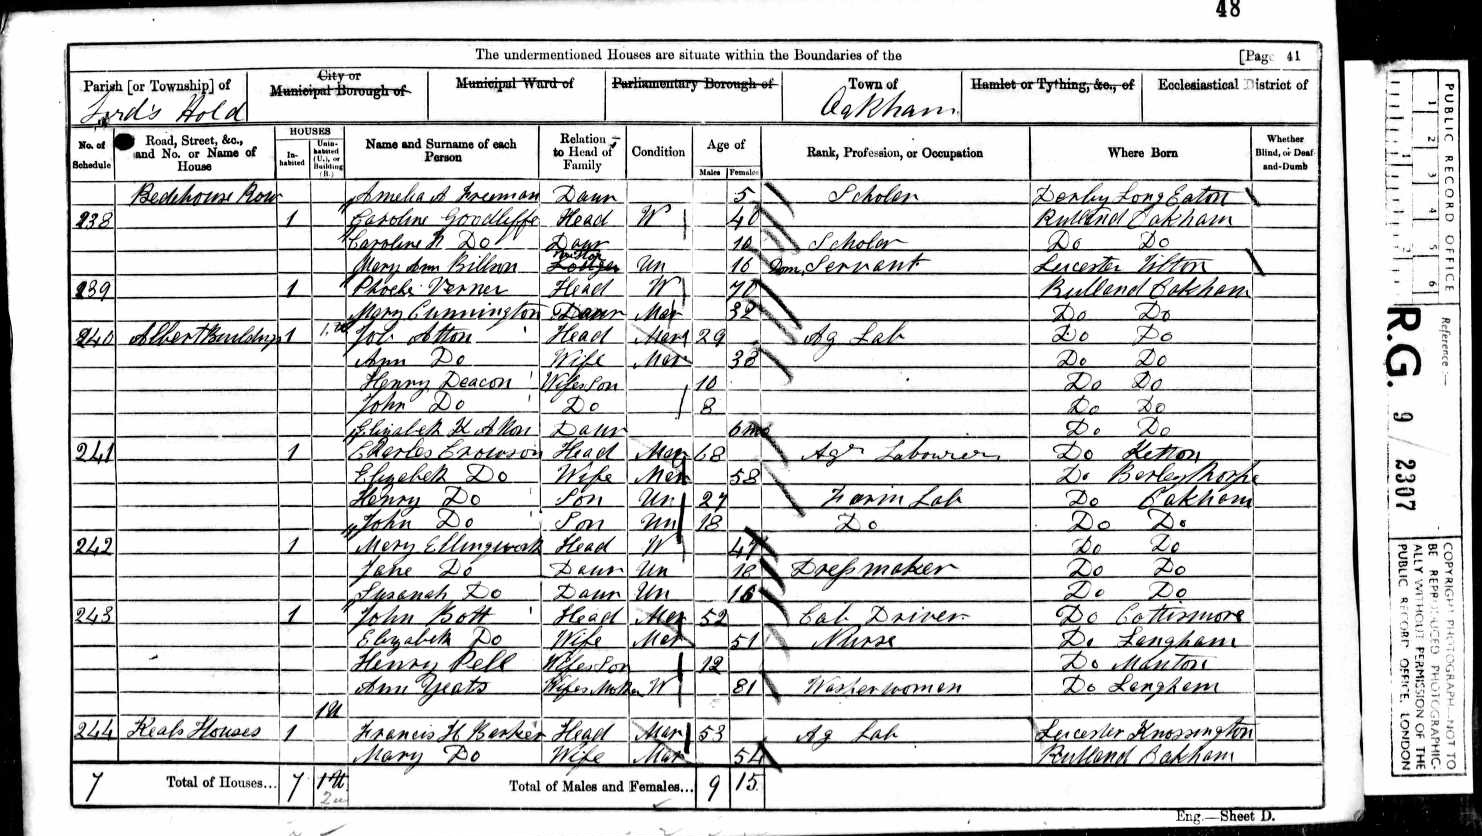 48
The undermentioned Houses are situate within the Boundaries of the [Page 41
Parish [or Township] of City or Municipal Borough of Municipal Ward of Parliamentary Borough of Town of Hamlet or Tything, &c., of Ecclesiastical District of
Lord's Hold Oakham
No. of Schedule Road, Street, &c., and No. or Name of House HOUSES In-habited Unin-habited (U.), or Building (B.) Name and Surname of each Person Relation to Head of Family Condition Age of Males Females Rank, Profession, or Occupation Where Born Whether Blind, or Deaf-and-Dumb
Bedehouse Row Amelia A Freeman Daur 5 Scholar Derby Long Eaton
238 1 Caroline Goodliffe Head W 40 Rutland Oakham
Caroline H Do Daur 10 Scholar Do Do
Mary Ann Billson Visitor Lodger Un 16 Dom. Servant Leicester Tilton
239 1 Phoebe Verner Head W 70 Rutland Oakham
Mary Cunnington Daur Mar 32 Do Do
240 Albert Buildings 1 1 U Job Atton Head Mar 29 Ag Lab Do Do
Ann Do Wife Mar 33 Do Do
Henry Deacon Wifes Son 10 Do Do
John Do Do 8 Do Do
Elizabeth H Atton Daur 6 mo Do Do
241 1 Charles Crowson Head Mar 68 Agr Labourer Do Ketton
Elizabeth Do Wife Mar 58 Do Barleythorpe
Henry Do Son Un 27 Farm Lab Do Oakham
John Do Son Un 18 Do Do Do
242 1 Mary Ellingwork Head W 47 Do Do
Jane Do Daur Un 18 Dressmaker Do Do
Susanah Do Daur Un 16 Do Do
243 1 John Bott Head Mar 52 Cab Driver Do Cottesmore
Elizabeth Do Wife Mar 51 Nurse Do Langham
Henry Pell Wifes Son 12 Do Manton
Ann Yeats Wifes Mother W 81 Washerwoman Do Langham
1 U
244 Keals Houses 1 Francis H Barker Head Mar 53 Ag Lab Leicester Knossington
Mary Do Wife Mar 54 Rutland Oakham
7 Total of Houses... 7 1 U 2u Total of Males and Females... 9 15
Eng.—Sheet D.
PUBLIC RECORD OFFICE
1 2 3 4 5 6
1 2
Reference:—
R.G. 9 2307
COPYRIGHT PHOTOGRAPH—NOT TO BE REPRODUCED PHOTOGRAPHICALLY WITHOUT PERMISSION OF THE PUBLIC RECORD OFFICE, LONDON